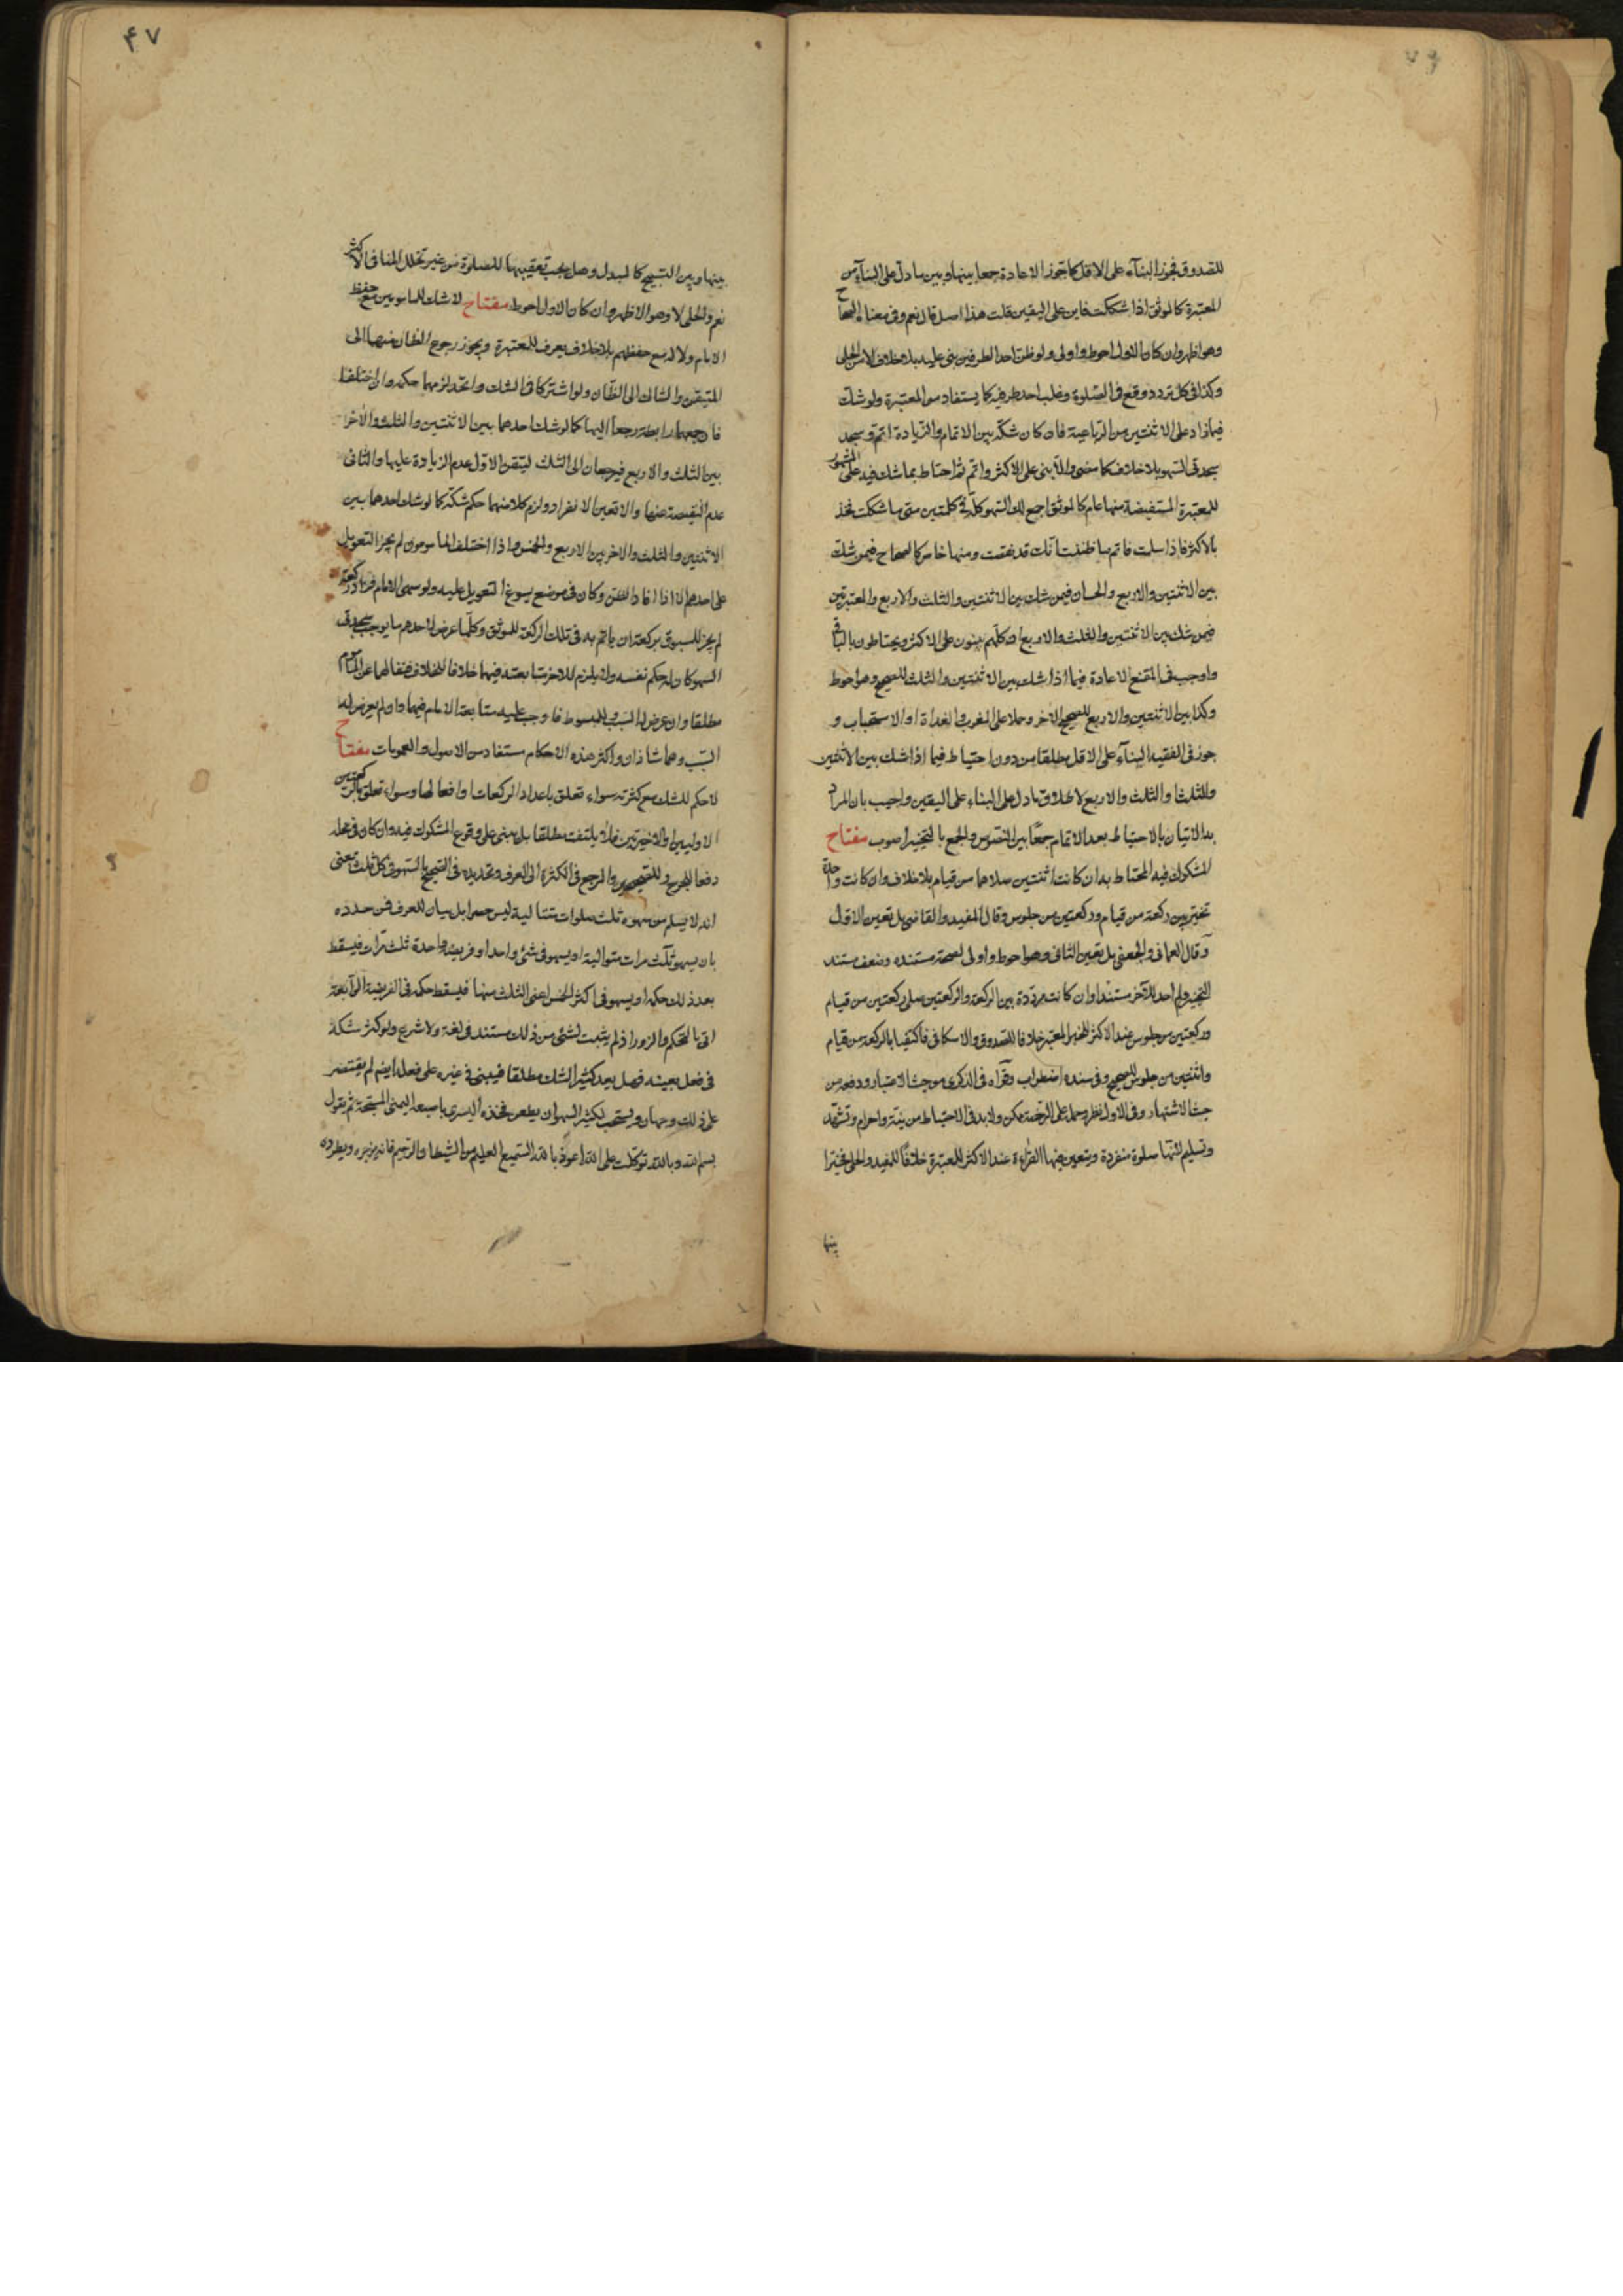 للصدوق فجوز البناء على الاقل كما جوز الاعادة جمعا بينها وبين ما دل على البناء من
المعتبرة كالموثق اذا شككت فابن على اليقين قلت هذا اصل قال نعم وفي معناه الصحاح
وهو اظهر وان كان الاول احوط واولى ولو ظن احد الطرفين بنى عليه بلا خلاف الا من الحلي
وكذا في كل تردد وقع في الصلوة وغلب احد طرفيه كما يستفاد من المعتبرة ولو شك
فيما زاد على الاثنتين من الرباعية فان كان شكه بين الاتمام والزيادة اتم وسجد
سجدتي السهو بلا خلاف كما مضى والا بنى على الاكثر واتم ثم احتاط بما شك فيه على المشهور
للمعتبرة المستفيضة منها عام كالموثق اجمع لك السهو كله في كلمتين متى ما شككت فخذ
بالاكثر فاذا سلمت فاتم ما ظننت انك قد نقصت ومنها خاص كالصحاح فيمن شك
بين الاثنتين والاربع والحسان فيمن شك بين الاثنتين والثلث والاربع والمعتبرتين
فيمن شك بين الاثنتين والثلث والاربع ان كلهم يبنون على الاكثر ويحتاطون بالباقي
واوجب في المقنع الاعادة فيما اذا شك بين الاثنتين والثلث للصحيح وهو احوط
وكذا بين الاثنتين والاربع للصحيح الاخر وحملا على المغرب والغداة او الاستحباب و
جوز في الفقيه البناء على الاقل مطلقا من دون احتياط فيما اذا شك بين الاثنتين
والثلث او الثلث والاربع لاطلاق ما دل على البناء على اليقين واجيب بان المراد
به الاتيان بالاحتياط بعد الاتمام جمعا بين النصوص والجمع بالتخيير اصوب مفتاح
المشكوك فيه المحتاط به ان كانت اثنتين صلاهما من قيام بلا خلاف وان كانت واحدة
تخير بين ركعة من قيام وركعتين من جلوس وقال المفيد والقاضي بل تعين الاول
وقال العماني والجعفي بل تعين الثاني وهو احوط واولى لصحة مستنده وضعف مستند
التخيير ولم اجد للآخر مستندا وان كانت مرددة بين الركعة والركعتين صلى ركعتين من قيام
وركعتين من جلوس عند الاكثر للخبر المعتبر خلافا للصدوق والاسكافي فاكتفيا بالركعة من قيام
واثنتين من جلوس للصحيح وفي سنده اضطراب وقواه في الذكرى من حيث الاعتبار ودفعه من
حيث الاشتهار وفي الاول نظر وحمله على الرخصة ممكن ولا بد في الاحتياط من نية واحرام وتشهد
وتسليم لانها صلوة منفردة ويتعين فيها القراءة عند الاكثر للمعتبرة خلافا للمفيد والحلي فخيرا
بينها
۴۷
بينها وبين التسبيح كالمبدل وهل يجب تعقيبها للصلوة من غير تخلل المنافي الاكثر
نعم والحلي لا وهو الاظهر وان كان الاول احوط مفتاح لا شك للماموين مع حفظ
الامام ولا له مع حفظهم بلا خلاف يعرف للمعتبرة ويجوز رجوع الظان منهما الى
المتيقن والشاك الى الظان ولو اشتركا في الشك واتحد لزمهما حكمه وان اختلفا
فان جمعهما رابطة رجعا اليها كما لو شك احدهما بين الاثنتين والثلث والاخر
بين الثلث والاربع فيرجعان الى الثلث لتيقن الاول عدم الزيادة عليها والثاني
عدم النقيصة عنها والا تعين الانفراد ولزم كلا منهما حكم شكه كما لو شك احدهما بين
الاثنتين والثلث والاخر بين الاربع والخمس واذا اختلف الماموون لم يجز التعويل
على احدهم الا اذا افاد الظن وكان في موضع يسوغ التعويل عليه ولو سهى الامام فزاد ركعة
لم يجز للمسبوق بركعة ان ياتم به في تلك الركعة للموثق وكلما عرض لاحدهم ما يوجب سجدتي
السهو كان له حكم نفسه ولا يلزم للاخر متابعته فيها خلافا للخلاف فنفاهما عن الماموم
مطلقا وان عرض له السبب وللمبسوط فاوجب عليه متابعة الامام فيها وان لم يعرض له
السبب وهما شاذان واكثر هذه الاحكام مستفاد من الاصول والعمومات مفتاح
لا حكم للشك مع كثرته سواء تعلق باعداد الركعات او افعالها وسواء تعلق بالركعتين
الاوليين او الاخيرتين فلا يلتفت مطلقا بل يبنى على وقوع المشكوك فيه وان كان في محله
دفعا للحرج وللصحيحين والمرجع في الكثرة الى العرف وتحديده في الصحيح بالسهو في كل ثلث يعنى
انه لا يسلم من سهوه ثلث صلوات متتالية ليس حصرا بل بيان للعرف فمن حدده
بان يسهو ثلث مرات متوالية او يسهو في شئ واحد او فريضة واحدة ثلث مرات فيسقط
بعد ذلك حكمه او يسهو في اكثر الخمس اعنى الثلث منها فيسقط حكمه في الفريضة الرابعة
اتى بالتحكم والزور اذ لم يثبت لشئ من ذلك مستند في لغة ولا شرع ولو كثر شكه
في فعل بعينه فهل يعد كثير الشك مطلقا فيبنى في غيره على فعله ايضم لم يقتصر
على ذلك وجهان ويستحب لكثير السهو ان يطعن فخذه اليسرى باصبعه اليمنى المسبحة ثم يقول
بسم الله وبالله توكلت على الله اعوذ بالله السميع العليم من الشيطان الرجيم فانه يزجره ويطرده